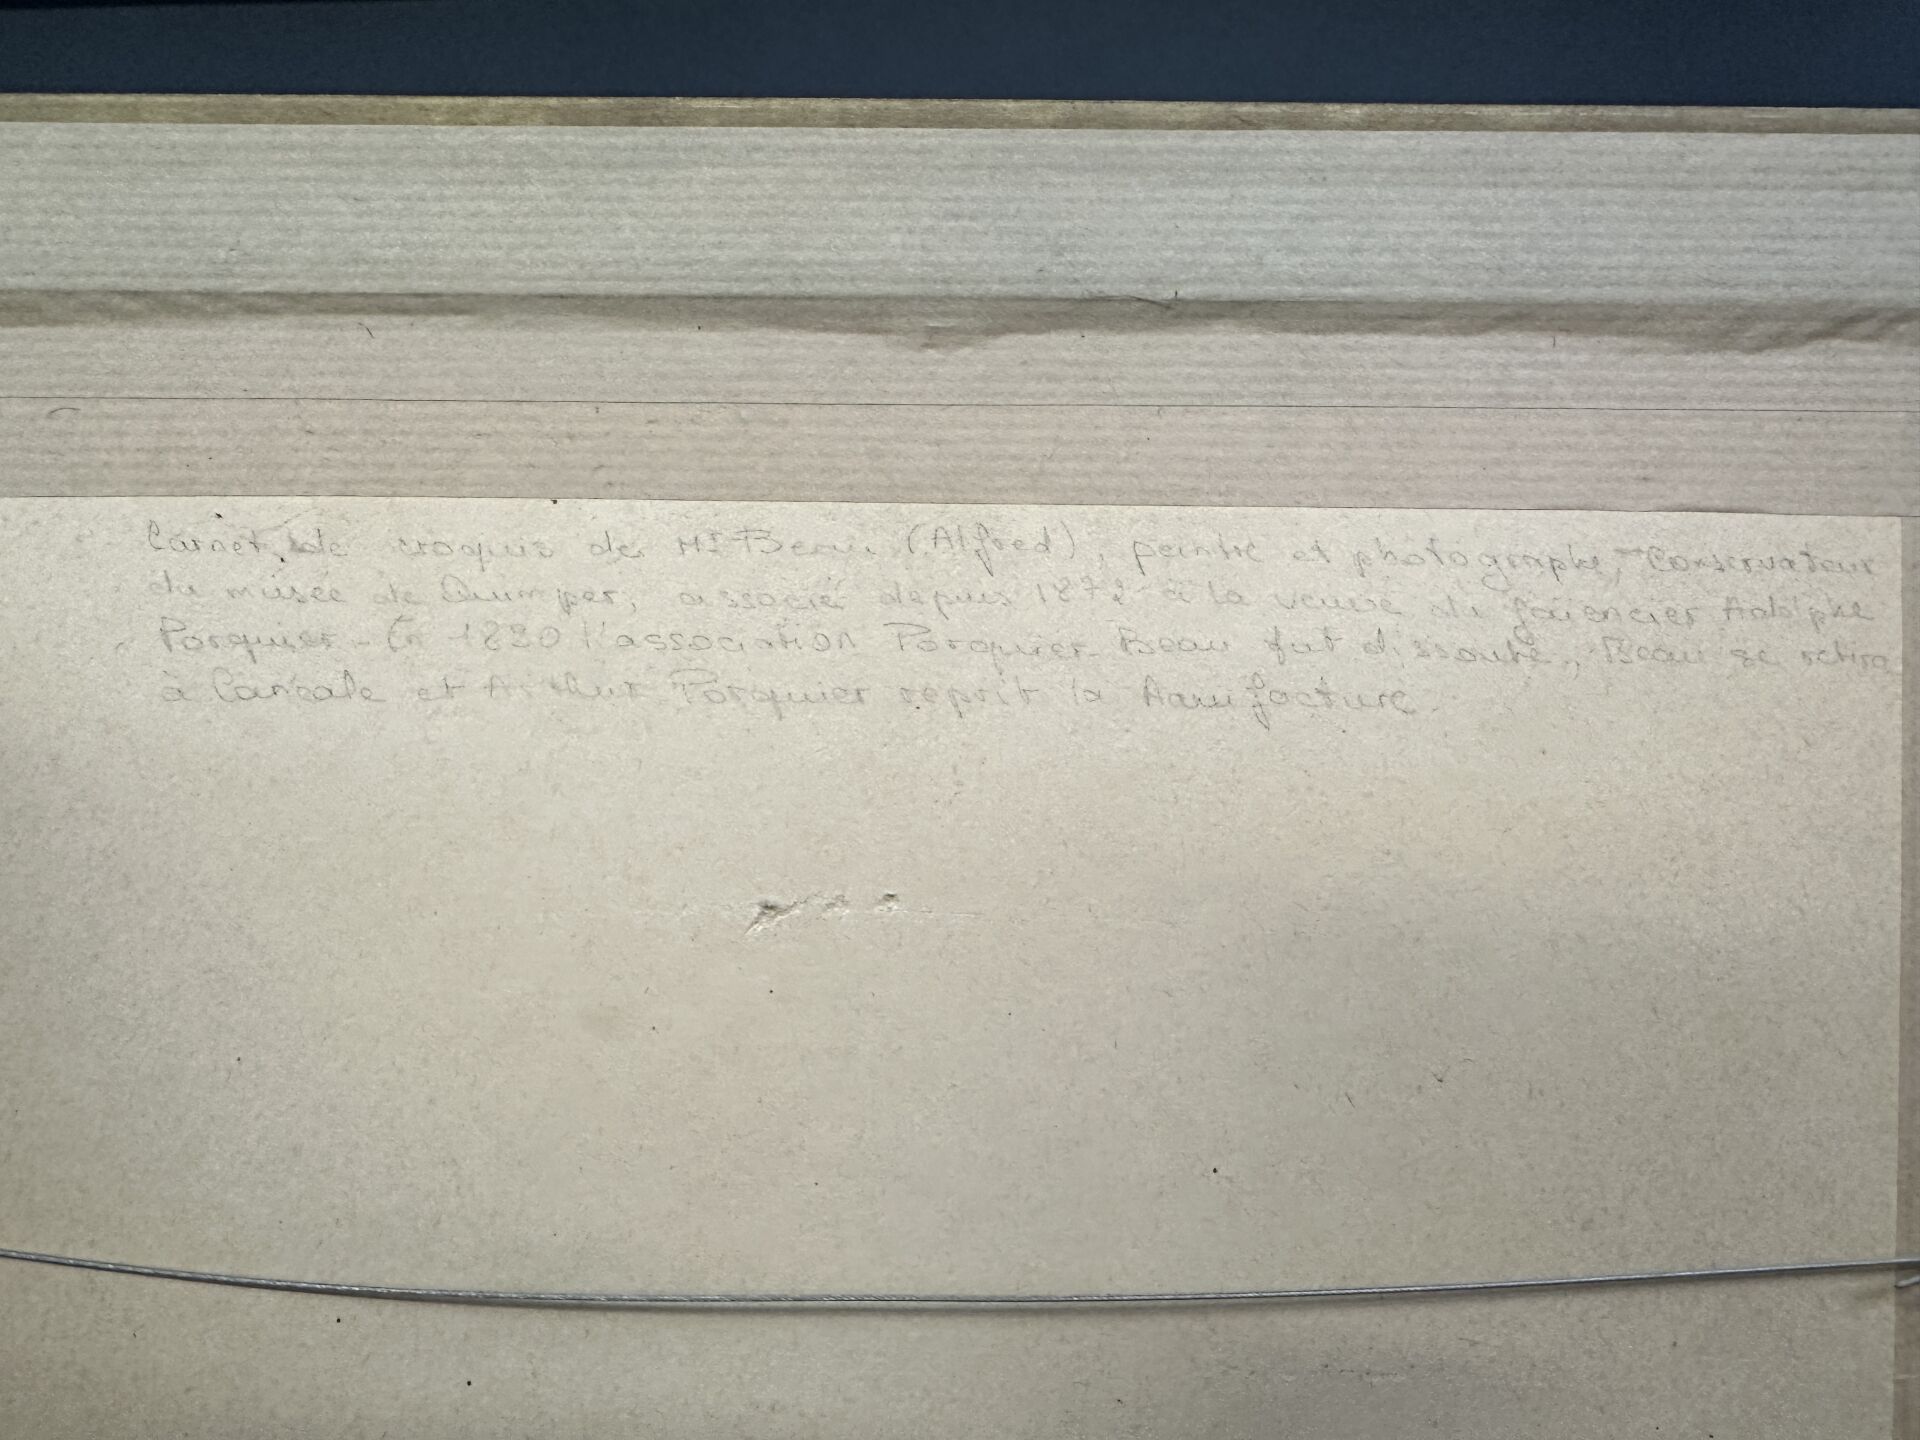 Carnet de croquis de Mr Beau (Alfred), peintre et photographe, Conservateur
du musée de Quimper, associé depuis 1872 à la veuve du faïencier Adolphe
Porquier - En 1890 l'association Porquier-Beau fut dissoute, Beau se retira
à Cancale et Arthur Porquier reprit la Manufacture.